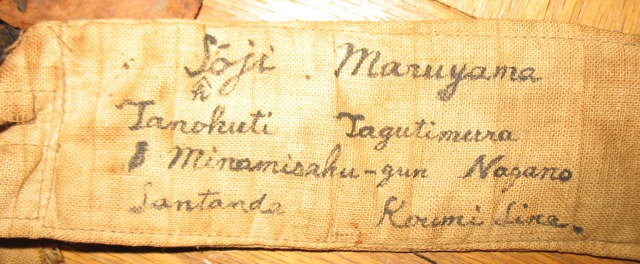 Sōji Maruyama
h
Tanokuti Tagutimura
Minamisaku-gun Nagano
Santanda Koumi Line.